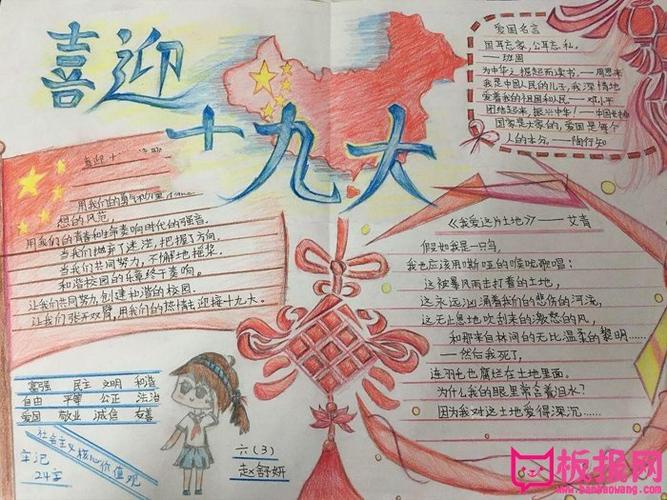 喜迎
十九大
爱国名言
国耳忘家,公耳忘私。
——班固
为中华之掘起而读书——周恩来
我是中国人民的儿子,我深情地
爱着我的祖国和人民——邓小平
团结起来,振兴中华!
国家是大家的,爱国是每个
人的本分。——陶行知
喜迎十
用我们的勇气和
想的风范,
用我们的青春和生命奏响时代的强音。
当我们抛弃了迷茫,把握了方向
当我们共同努力,不懈地摇桨。
和谐校园的乐章终于奏响。
让我们共同努力,创建和谐的校园。
让我们张开双臂,用我们的热情去迎接十九大。
《我爱这片土地》——艾青
假如我是一只鸟,
我也应该用嘶哑的喉咙歌唱:
这被暴风雨击打着的土地,
这永远汹涌着我们的悲伤的河流,
这无止息地吹刮来的激怒的风,
和那来自林间的无比温柔的黎明……
——然后我死了,
连羽毛也腐烂在土地里面。
为什么我的眼里常含着泪水?
因为我对这土地爱得深沉……
富强 民主 文明 和谐
自由 平等 公正 法治
爱国 敬业 诚信 友善
社会主义核心价值观
牢记
24字
六(3)
赵舒妍
板报网
www.banbaowang.com